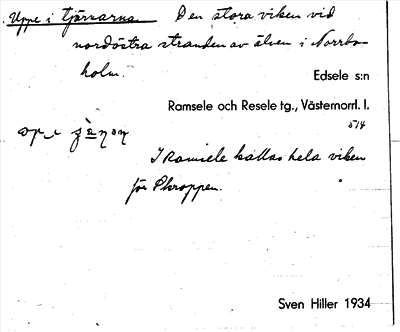 Uppe i tjärnarna Den stora viken vid
nordöstra stranden av älven i Norrbo-
holm.
Edsele s:n
Ramsele och Resele tg., Västernorrl. l.
I Ramsele kallas hela viken
för Skroppen.
Sven Hiller 1934